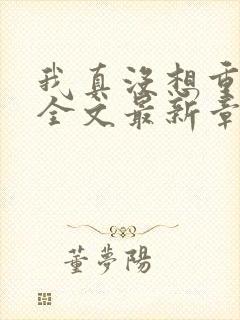 我真没想重
全文最新章
董夢陽